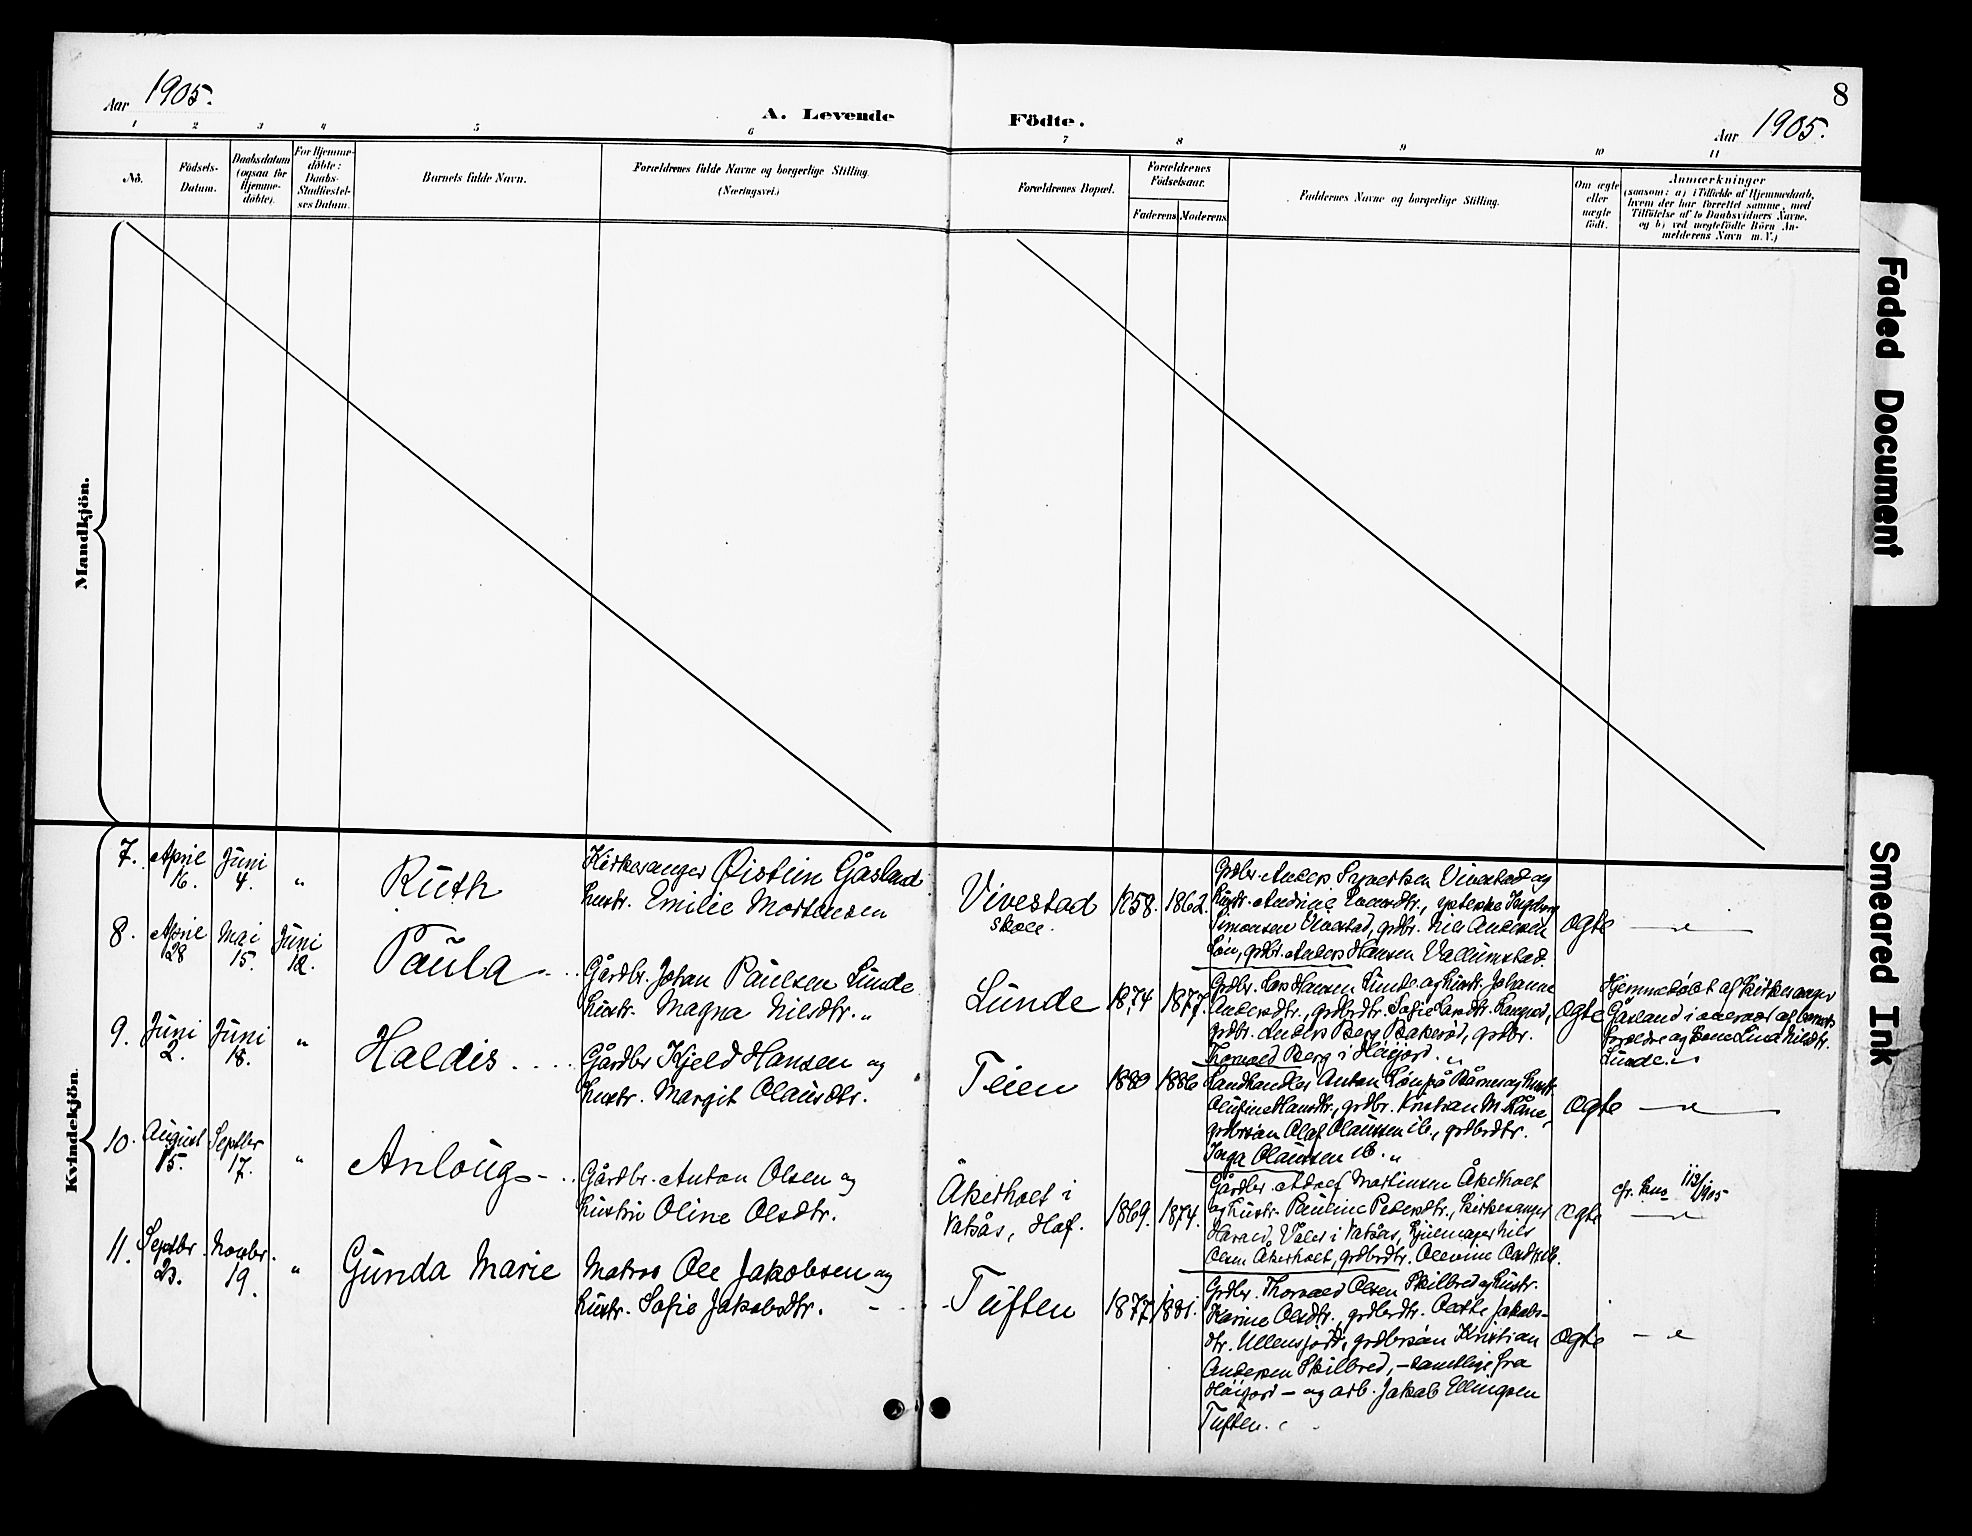 Aar 1905.
A. Levende Födte.
8
Aar 1905.
1 2 3 4 5 6 7 8 9 10 11
No.
Födsels-
Datum.
Daabsdatum
(ogsaa for
Hjemme-
døbte).
For Hjemme-
döbte:
Daabs-
Stadfæstel-
ses Datum.
Barnets fulde Navn.
Forældrenes fulde Navne og borgerlige Stilling.
(Næringsvei.)
Forældrenes Bopæl.
Forældrenes
Födselsaar.
Faderens Moderens
Faddernes Navne og borgerlige Stilling.
Om ægte
eller
uægte
født.
Anmærkninger
(saasom: a) i Tilfælde af Hjemmedaab,
hvem der har forrettet samme, med
Tilföielse af to Daabsvidners Navne.
og b) ved uægtefödte Börn An-
melderens Navn m. V.)
Mandkjön.
Kvindekjön.
7. April
16.
Juni
4.
"
Ruth
Kirkesanger Øistein Gåsland
hustr. Emilie Mortensen
Vivestad
skole.
1858. 1862.
Grdbr. Anders Vivestad og
hustr. Andrine
Simonsen Vivestad, grdbr. Nils Andersen
Løn, grdbr. Anders Hansen Vallumstad.
ægte
8. April
28
Mai
15.
Juni
12.
Paula
Gårdbr. Johan Paulsen Lunde
hustr. Magna Nilsdtr. "
Lunde
1874 1877.
Grdbr. Lars Hansen Lunde og hustr. Johanne
Andersdtr., grdbrdtr. Sofie Larsdtr.
grdbr. Anders Berg Bakerød, grdbr.
Thorvald Berg i Høijord. "
ægte
Hjemmedøbt af kirkesanger
Gåsland i overvær af barnets
forældre og Lina Nilsdtr.
Lunde.
9. Juni
2.
Juni
18.
"
Haldis
Gårdbr Kjeld Hansen og
hustr. Margit Olausdtr.
Teien
1880 1886
Landhandler Anton Løn på og hustr.
Olufine Hansdtr., grdbr. Kristian M.
grdbrsøn Olaf Olaussen ib., grdbrdtr.
Inga Olaussen ib. "
ægte
10. August
15.
Septbr
17.
"
Anlaug
Gårdbr. Anton Olsen og
hustru Oline Olsdtr.
Åkerholt i
Vatsås, Hof.
1869. 1874.
Gårdbr. Adolf Martinsen Åkerholt
og hustr. Pauline Pedersdtr., kirkesanger
Harald Våles i Vatsås, hjulmager Nils
Olsen Åkerholt, grdbrdtr. Olevine
ægte
11. Septbr
23.
Novbr.
19.
"
Gunda Marie
Matros Ole Jakobsen og
hustr. Sofie Jakobsdtr.
Tuften
1877. 1881.
Grdbr. Thorvald Olsen Skilbred og hustr.
Karine Olsdtr., grdbrdtr. Jakobs-
dtr. Ullensjord, grdbrsøn Kristian
Andersen Skilbred, – samtlige fra
Høijord – og arb. Jakob Ellingsen
Tuften.
ægte
Faded Document
Smeared Ink